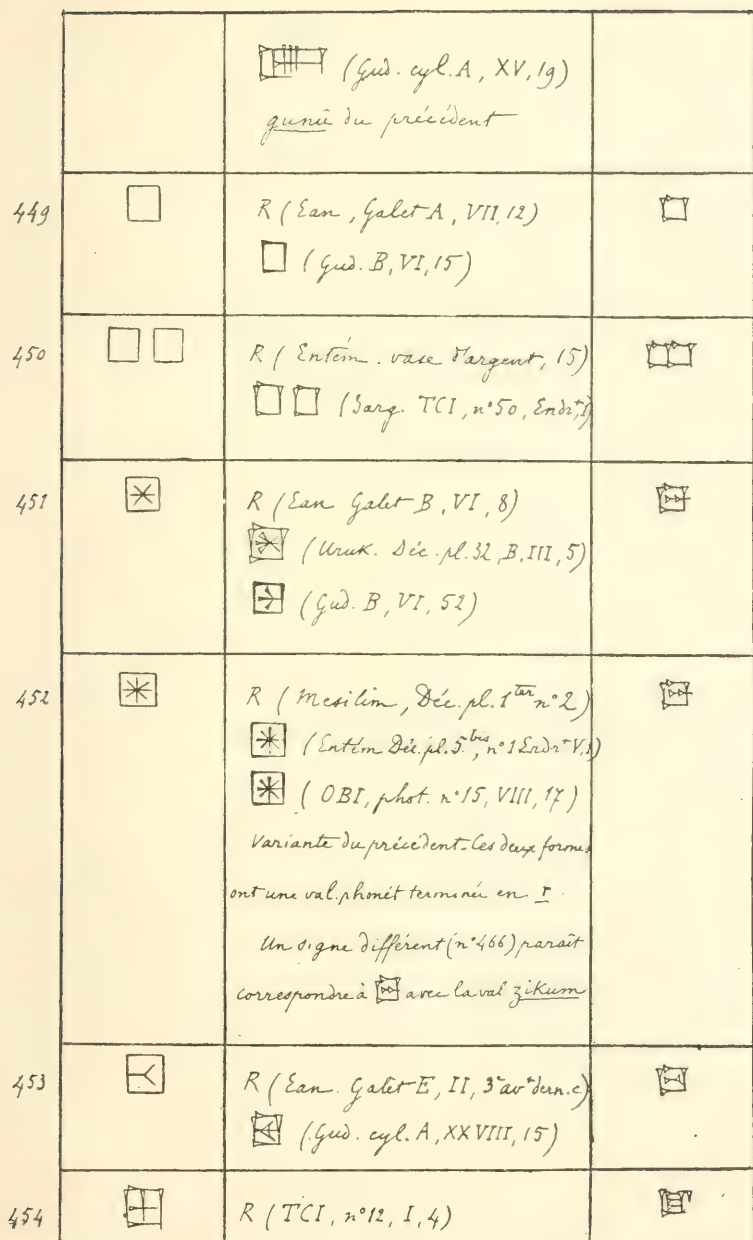 (Gud. cyl. A, XV, 19)
gunié du précédent
449 R (Ean, Galet A, VII, 12)
(Gud. B, VI, 15)
450 R (Entém. vase d'argent, 15)
(Sarg. TCI, n° 50, Endrt, I)
451 R (Ean Galet B, VI, 8)
(Uruk. Déc. pl. 32, B, III, 5)
(Gud. B, VI, 52)
452 R (Mesilim, Déc. pl. 1ter n° 2)
(Entém Déc. pl. 5bis, n° 1 Endrt V.1)
(OBI, phot. n° 15, VIII, 17)
Variante du précédent - Ces deux formes
ont une val. phonét terminée en r.
Un signe différent (n° 466) paraît
correspondre à avec la val zikum
453 R (Ean. Galet E, II, 3e avt dern. c)
(Gud. cyl. A, XXVIII, 15)
454 R (TCI, n° 12, I, 4)